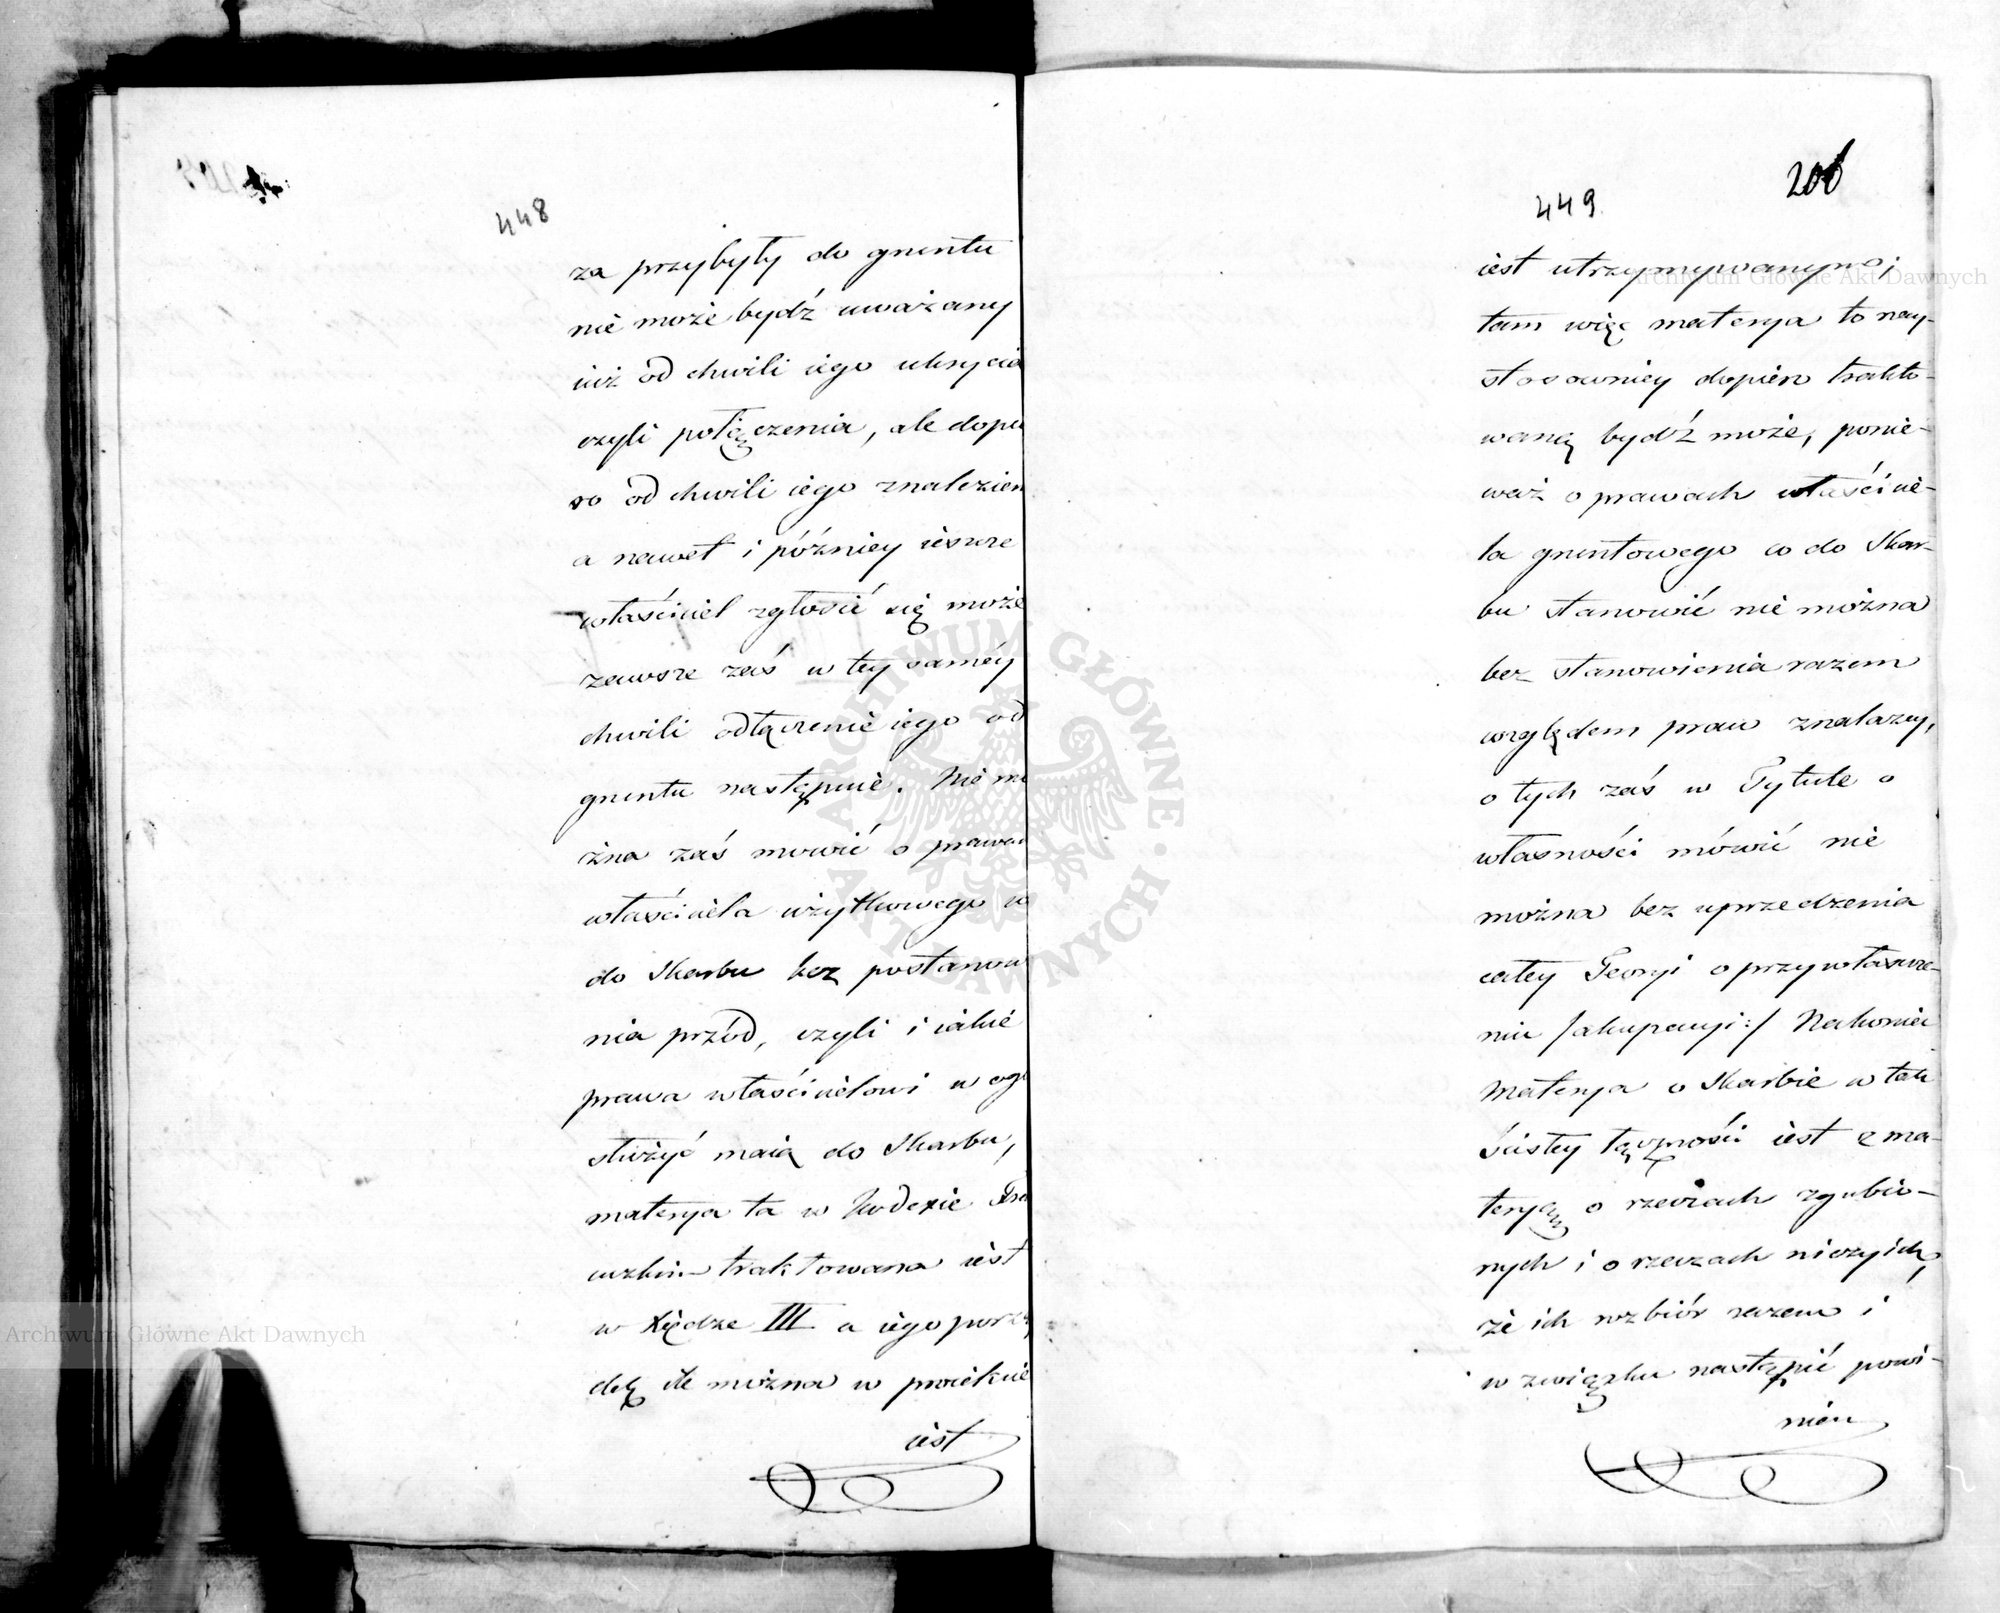 448
za przybyły do gruntu
nie może bydź uważany
iuż od chwili iego ukrycia
czyli połączenia, ale dopie
ro od chwili iego znalezien
a nawet i późniey ieszcze
właściciel zgłosić się może
zawsze zaś w tey saméy
chwili odłączenie iego od
gruntu następuie. Nie mo
żna zaś mowić o prawach
właściciela użytkowego co
do Skarbu bez postanowie
nia przód, czyli i iakie
prawa właścicielowi w ogó
służyć maią do Skarbu,
materya ta w Kodexie Fran
cuzkim traktowana iest
w Xiędze III a iego porzą
dek ile można w proiekcie
iest
449.
206
iest utrzymywanym;
tam więc materya to nay-
stosowniey dopiero trakto-
waną bydź może, ponie-
waż o prawach właścicie-
la gruntowego co do Skar-
bu stanowić nie można
bez stanowienia razem
względem praw znalazcy,
o tych zaś w Tytule o
własności mówić nie
można bez uprzedzenia
całey Teoryi o przywłaszcze-
niu /okupacyi:/ Nakoniec
Materya o Skarbie w tak
ścisłey łączności iest z ma-
teryą o rzeczach zgubio-
nych i o rzeczach niczyich,
że ich rozbiór razem i
w związku nastąpić powi-
nien
Archiwum Główne Akt Dawnych
Archiwum Główne Akt Dawnych
ARCHIWUM GŁÓWNE AKT DAWNYCH